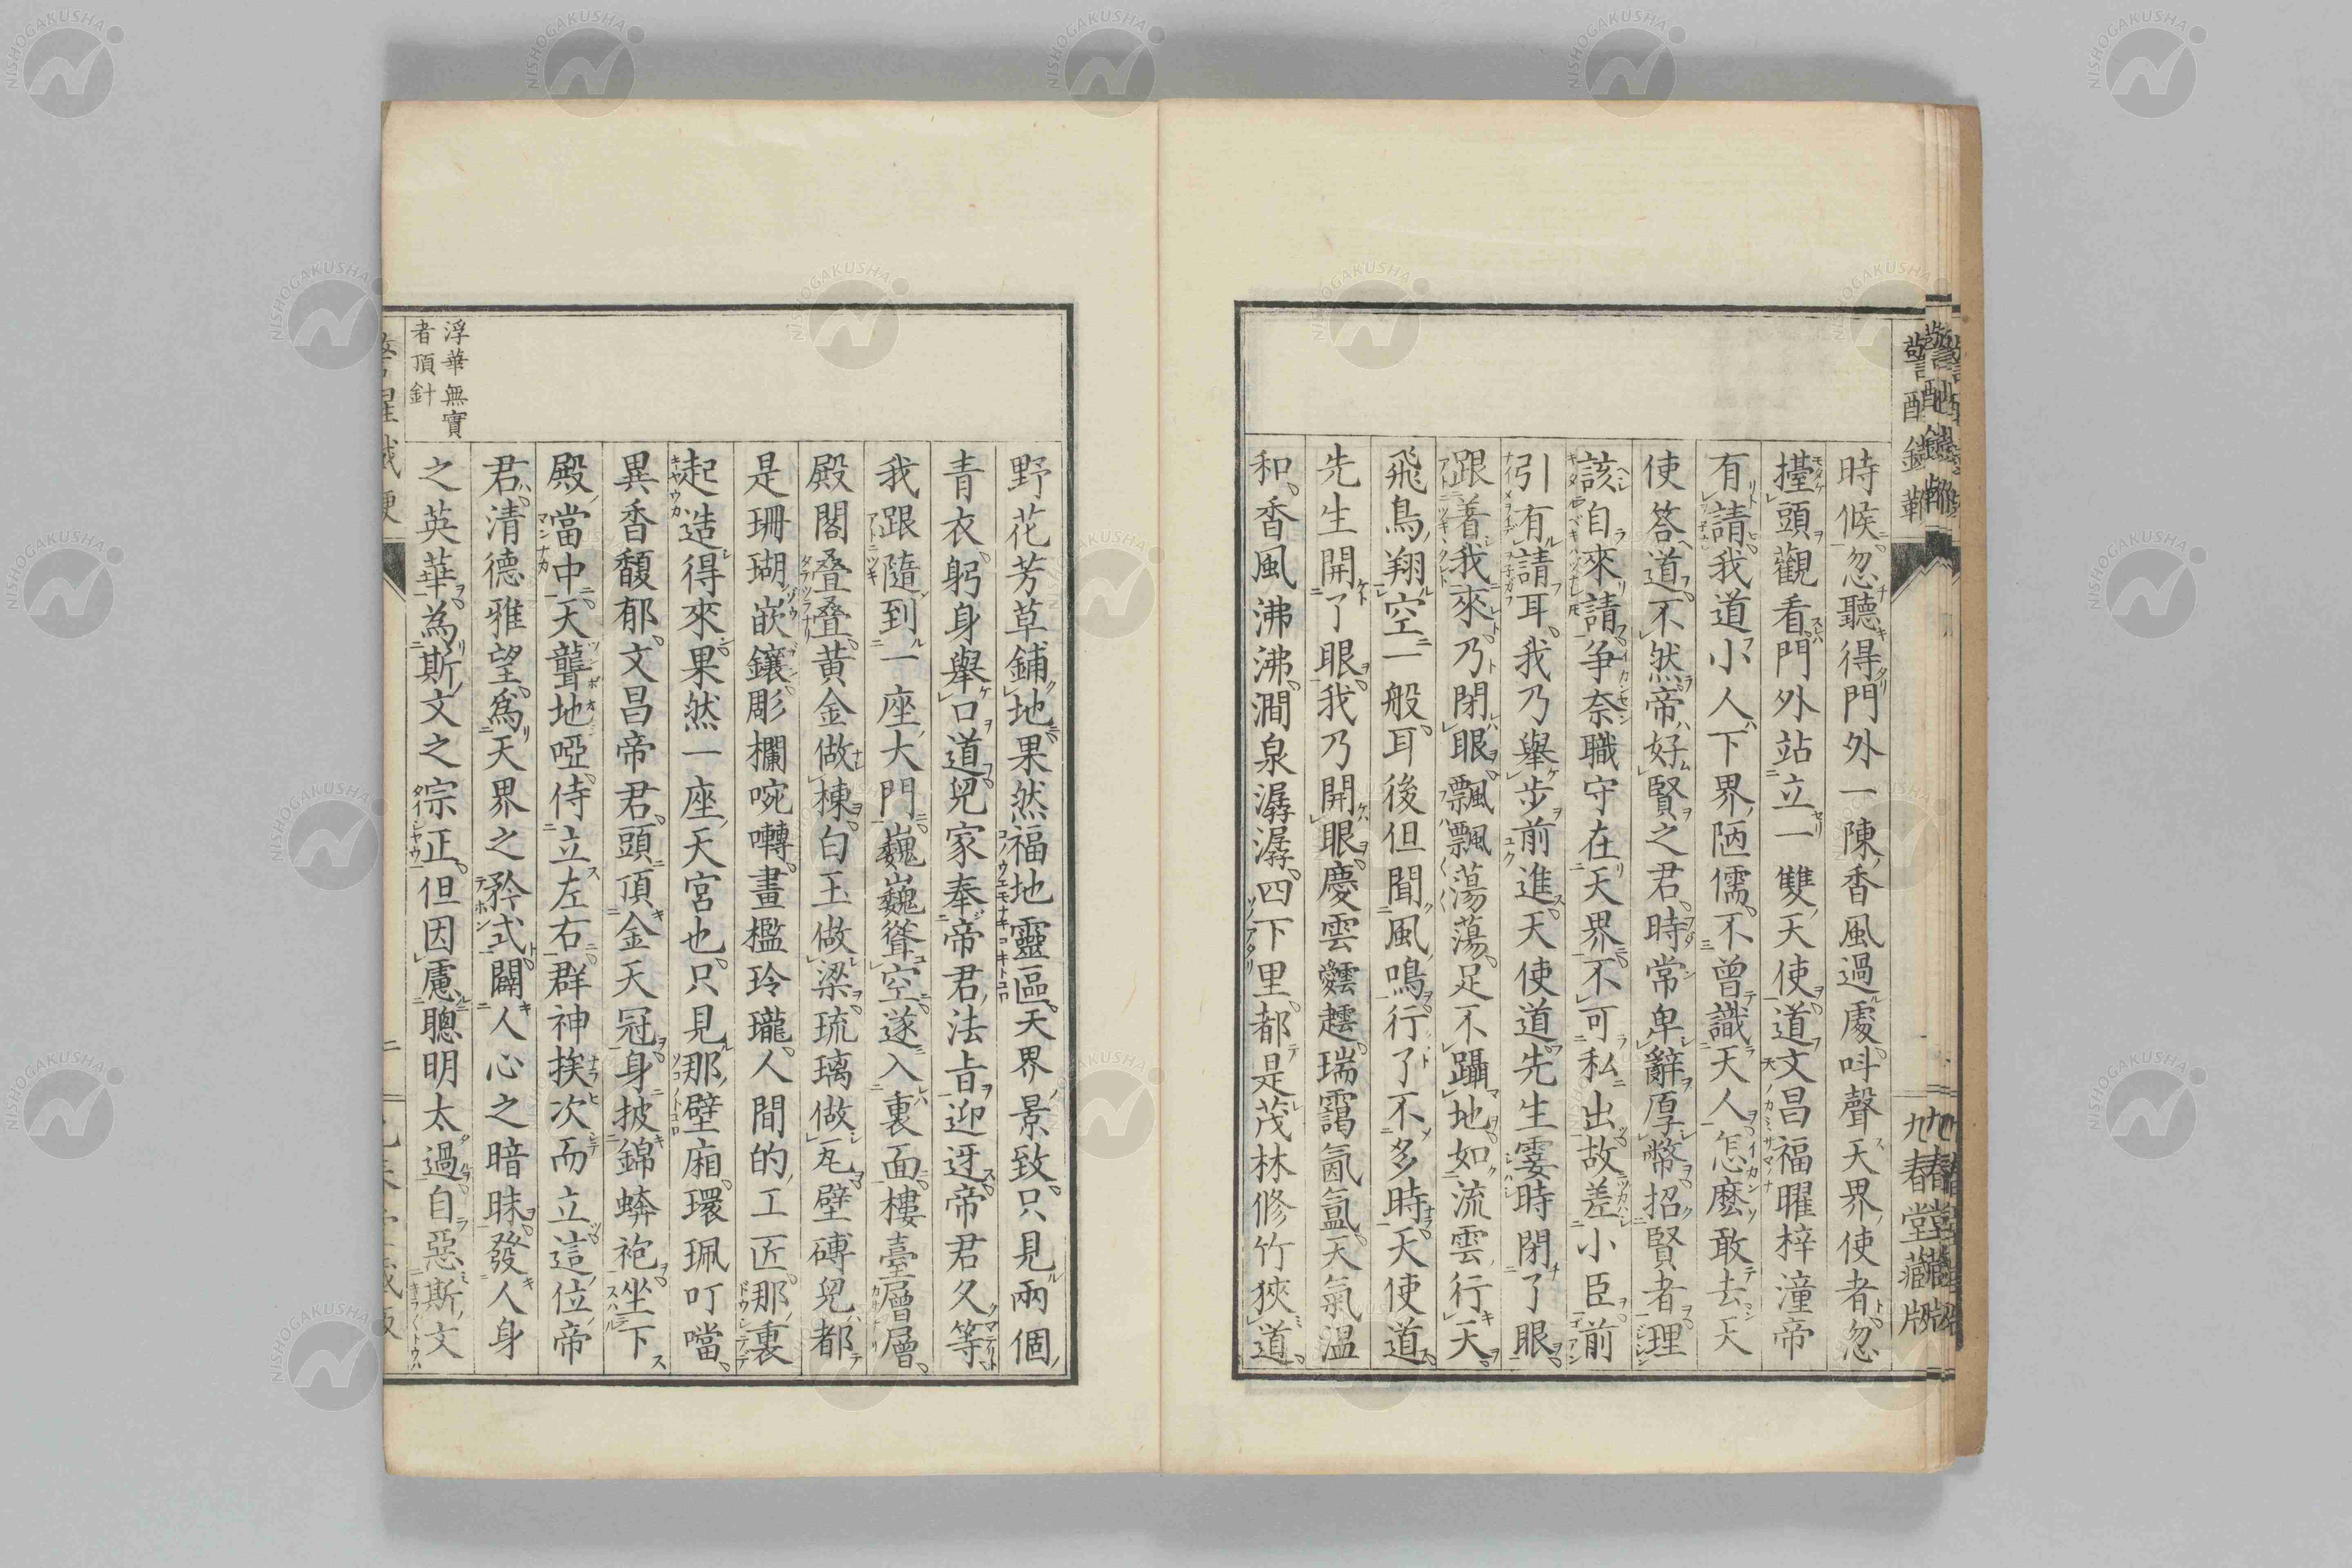 時候忽聽得門外一陳香風過處呌聲天界使者忽
擡頭觀看門外站立一雙天使道文昌福曜梓潼帝
有請我道小人下界陋儒不曾識天人怎麽敢去天
使答道不然帝好賢之君時常卑辭厚幣招賢者理
該自來請爭奈職守在天界不可私出故差小臣前
引有請耳我乃舉步前進天使道先生霎時閉了眼
跟着我來乃閉眼飄飄蕩蕩足不躡地如流雲行天
飛鳥翔空一般耳後但聞風鳴行了不多時天使道
先生開了眼我乃開眼慶雲靆靆瑞靄氤氳天氣溫
和香風沸沸澗泉潺潺四下里都是茂林修竹狹道
野花芳草鋪地果然福地靈區天界景致只見兩個
青衣躬身舉口道兒家奉帝君法旨迎迓帝君久等
我跟隨到一座大門巍巍聳空遂入裏面樓臺層層
殿閣叠叠黃金做棟白玉做梁琉璃做瓦壁磚兒都
是珊瑚嵌鑲彫欄啘囀畫檻玲瓏人間的工匠那裏
起造得來果然一座天宮也只見那壁廂環珮叮噹
異香馥郁文昌帝君頭頂金天冠身披錦蟒袍坐下
殿當中天聾地啞侍立左右群神挨次而立這位帝
君清德雅望爲天界之矜式闢人心之暗昧發人身
之英華為斯文之宗正但因慮聰明太過自惡斯文
浮華無實
者頂針
警醒鐵鞭
九春堂藏版